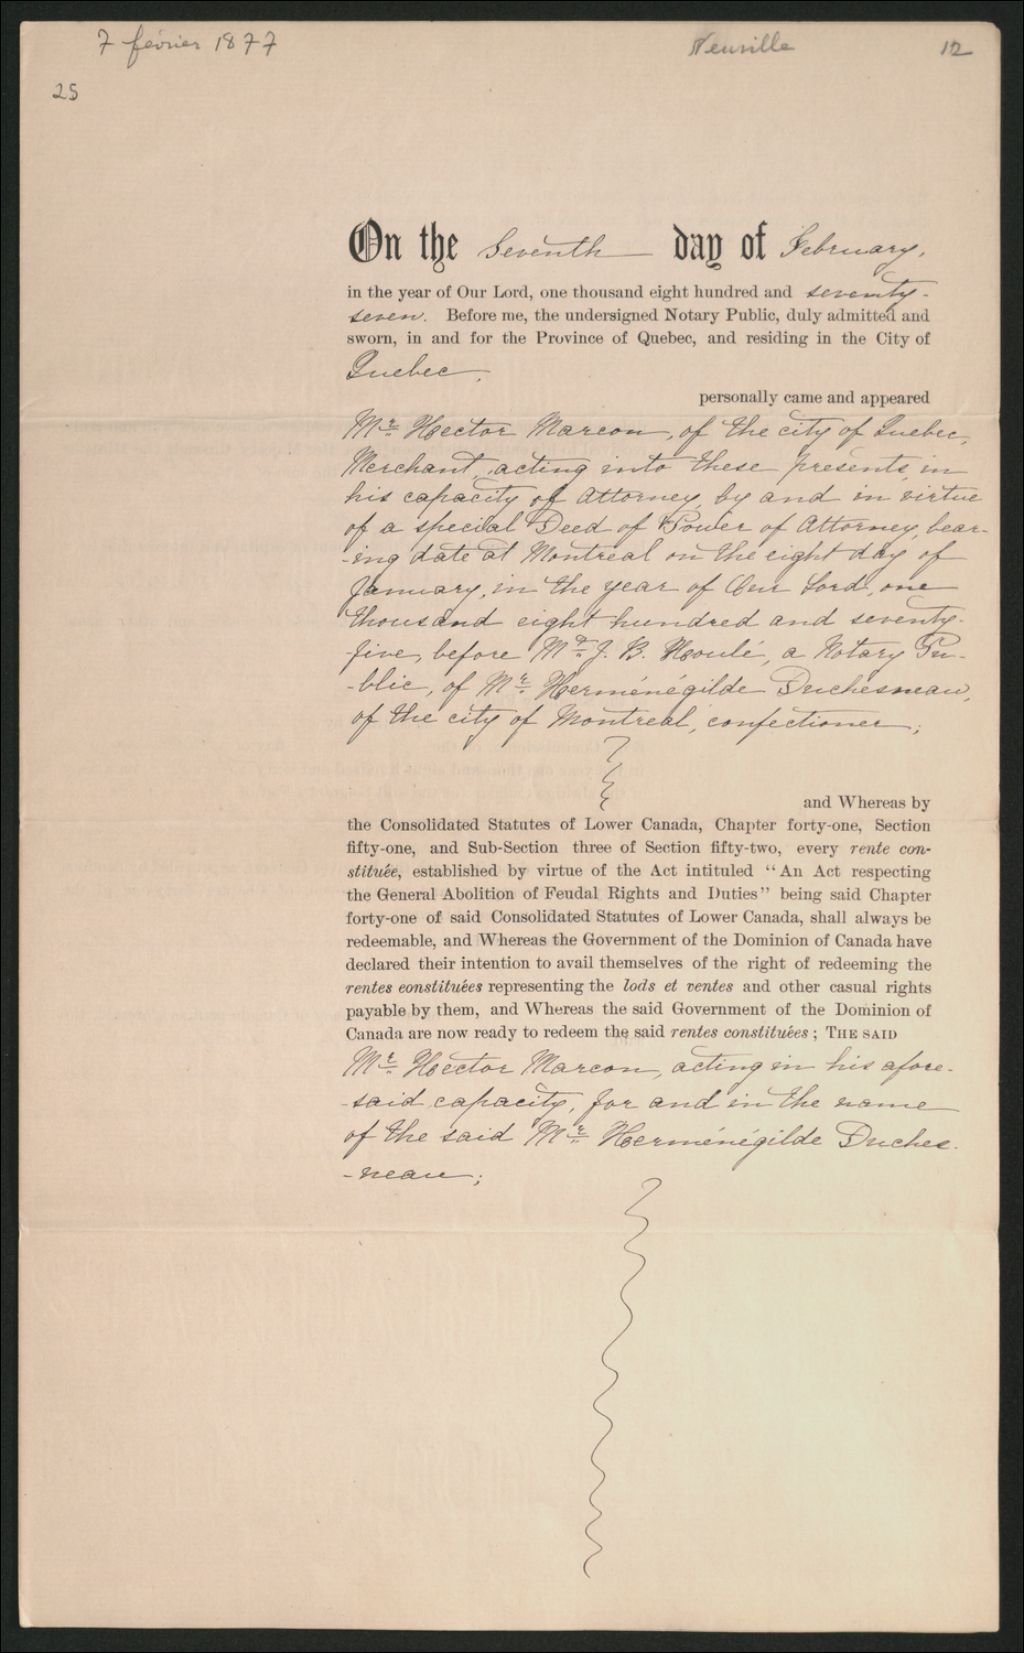 7 février 1877
Neuville
12
25
On the Seventh day of February,
in the year of Our Lord, one thousand eight hundred and seventy-
seven. Before me, the undersigned Notary Public, duly admitted and
sworn, in and for the Province of Quebec, and residing in the City of
Quebec,
personally came and appeared
Mr. Hector Marcon, of the city of Quebec,
Merchant, acting into these presents, in
his capacity of Attorney by and in virtue
of a special Deed of Power of Attorney, bear-
-ing date at Montreal on the eight day of
January, in the year of Our Lord, one
thousand eight hundred and seventy-
five, before Mr. J. B. Houlé, a Notary Pu-
-blic, of Mr. Herménégilde Duchesneau,
of the city of Montreal, confectioner;
and Whereas by
the Consolidated Statutes of Lower Canada, Chapter forty-one, Section
fifty-one, and Sub-Section three of Section fifty-two, every rente con-
stituée, established by virtue of the Act intituled "An Act respecting
the General Abolition of Feudal Rights and Duties" being said Chapter
forty-one of said Consolidated Statutes of Lower Canada, shall always be
redeemable, and Whereas the Government of the Dominion of Canada have
declared their intention to avail themselves of the right of redeeming the
rentes constituées representing the lods et ventes and other casual rights
payable by them, and Whereas the said Government of the Dominion of
Canada are now ready to redeem the said rentes constituées; THE SAID
Mr. Hector Marcon, acting in his afore-
-said capacity, for and in the name
of the said Mr. Herménégilde Duches-
-neau;